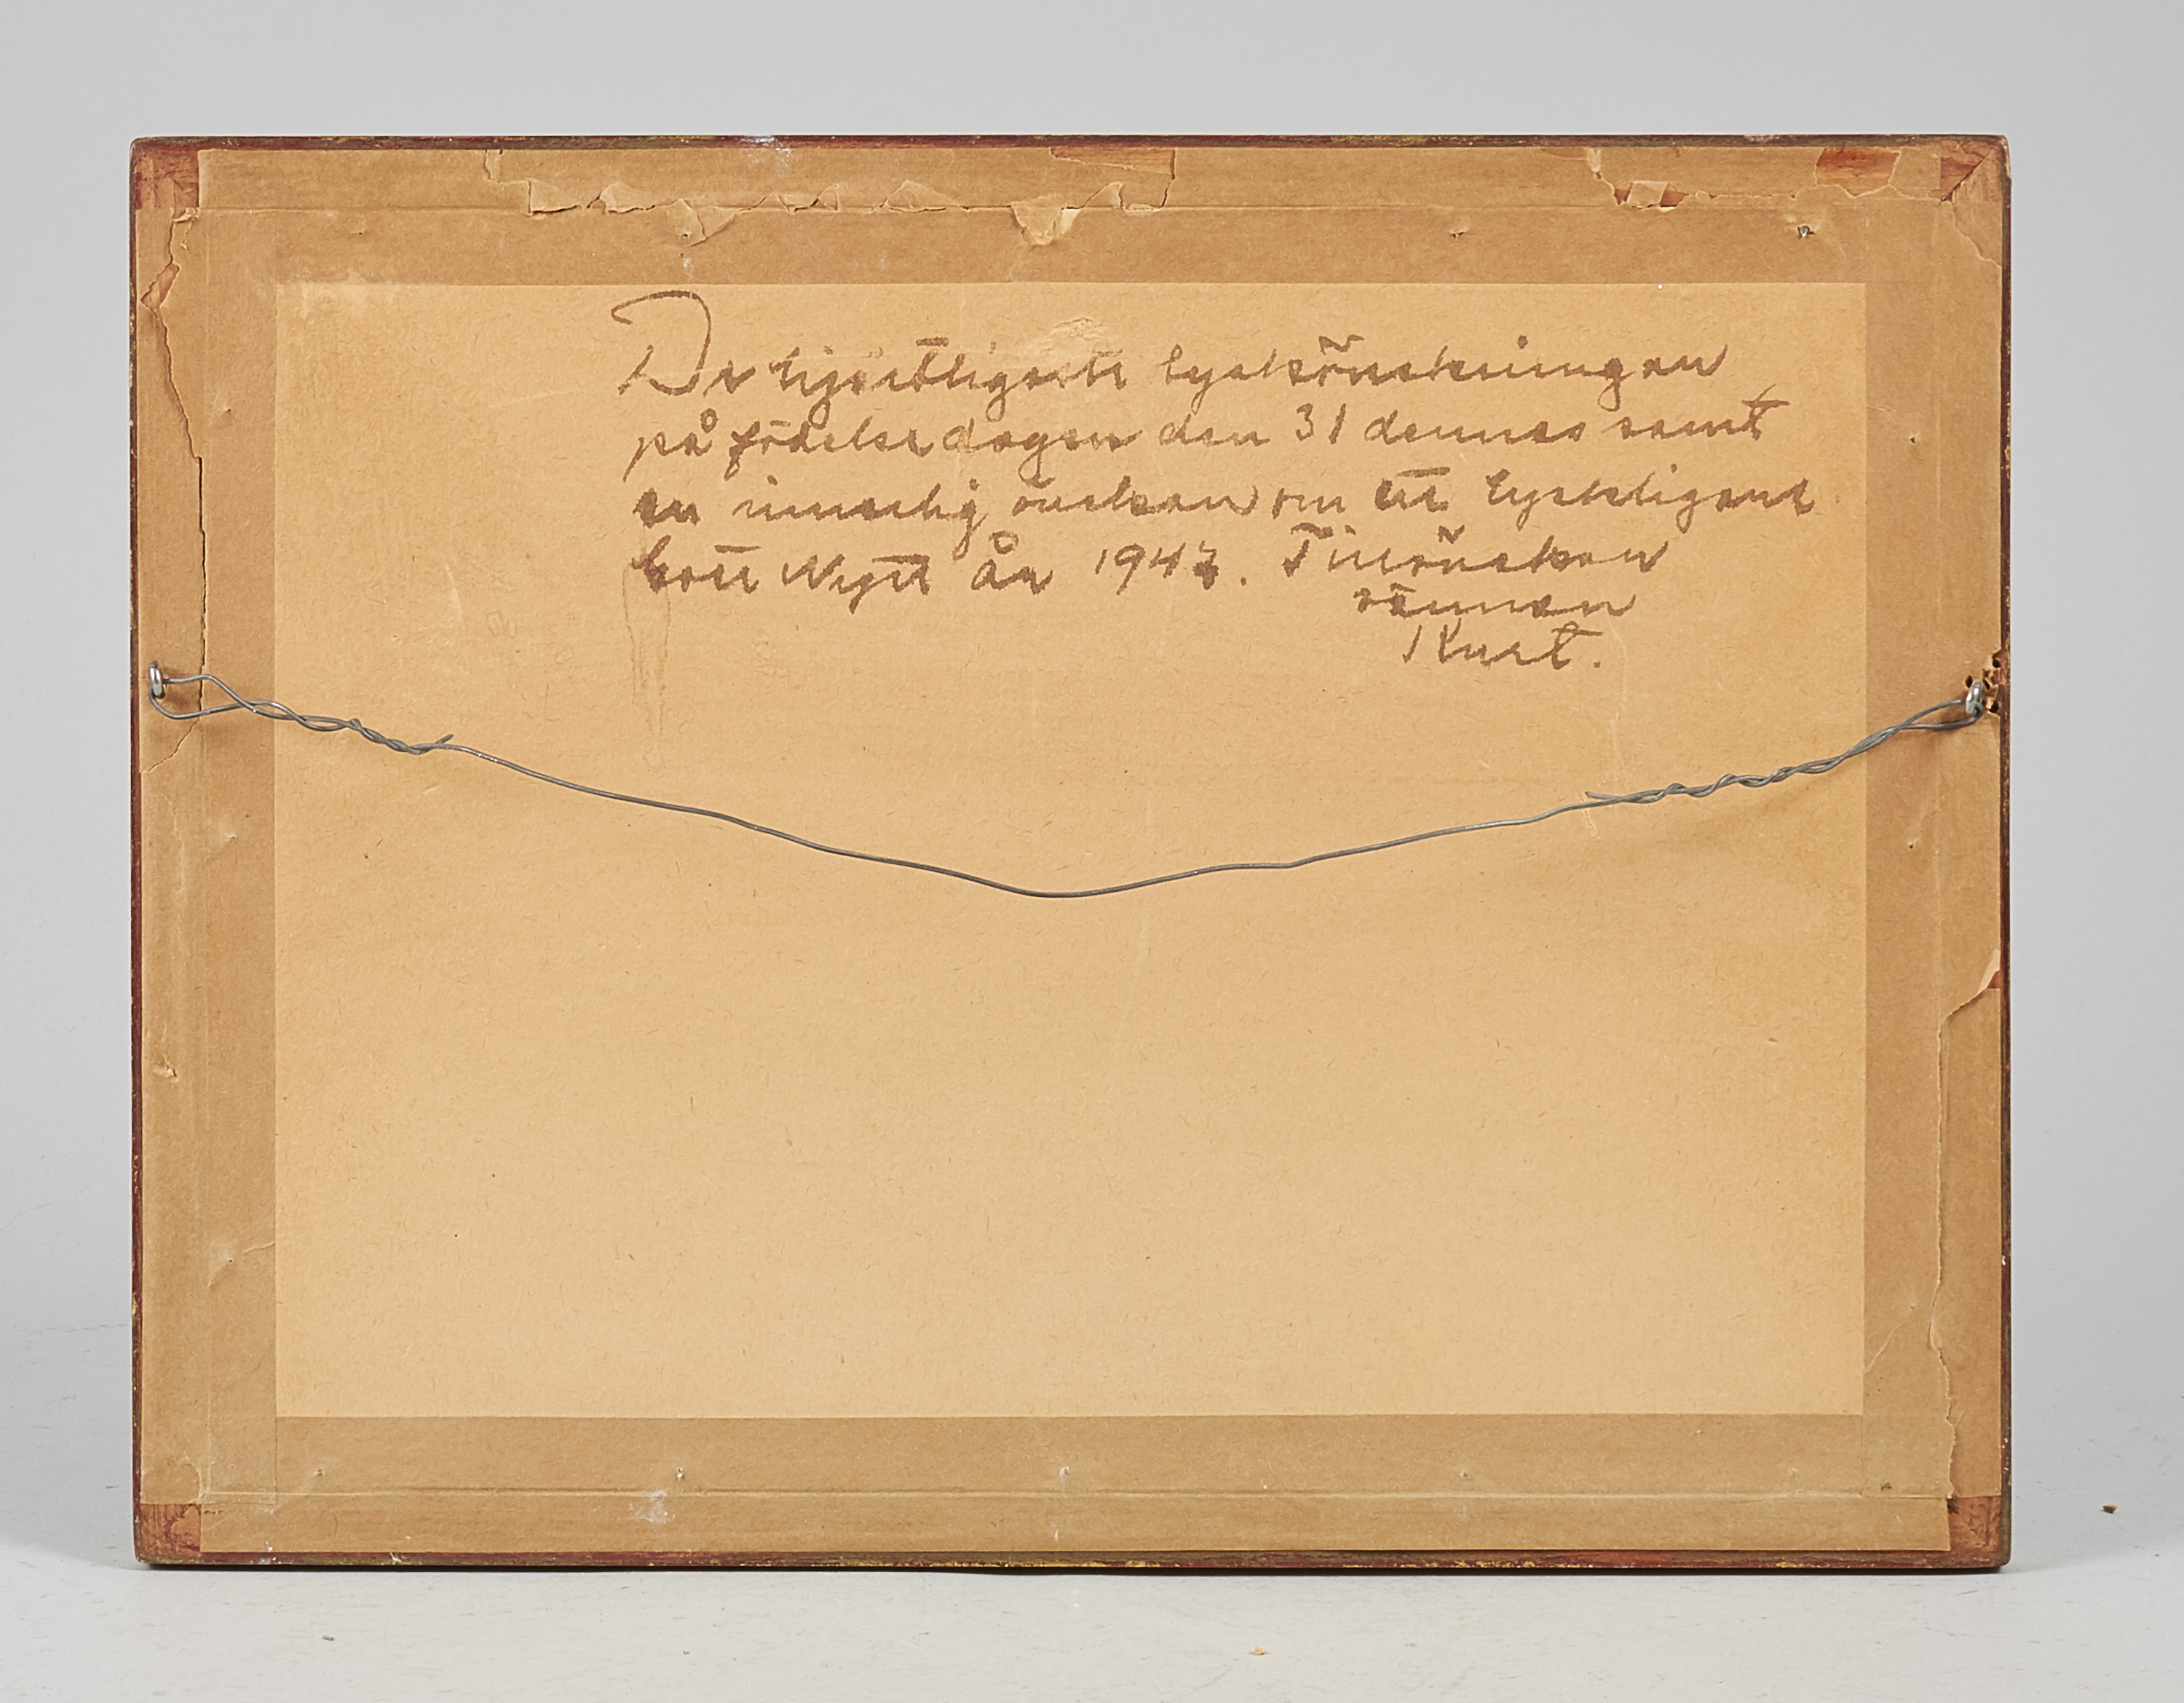 De hjärtligaste lyckönskningar
på födelsedagen den 31 dennes samt
en innerlig önskan om ett lyckligare
gott Nytt År 1947. Tillönskar
vännen
Kurt.